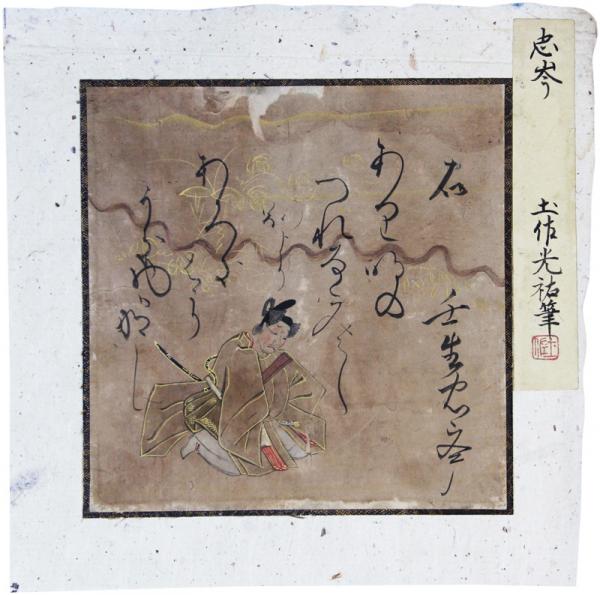 忠岑
土佐光祐筆
右
壬生忠岑
あり明の
つれなくみえし
より
あかつき
はかり
うき物はなし